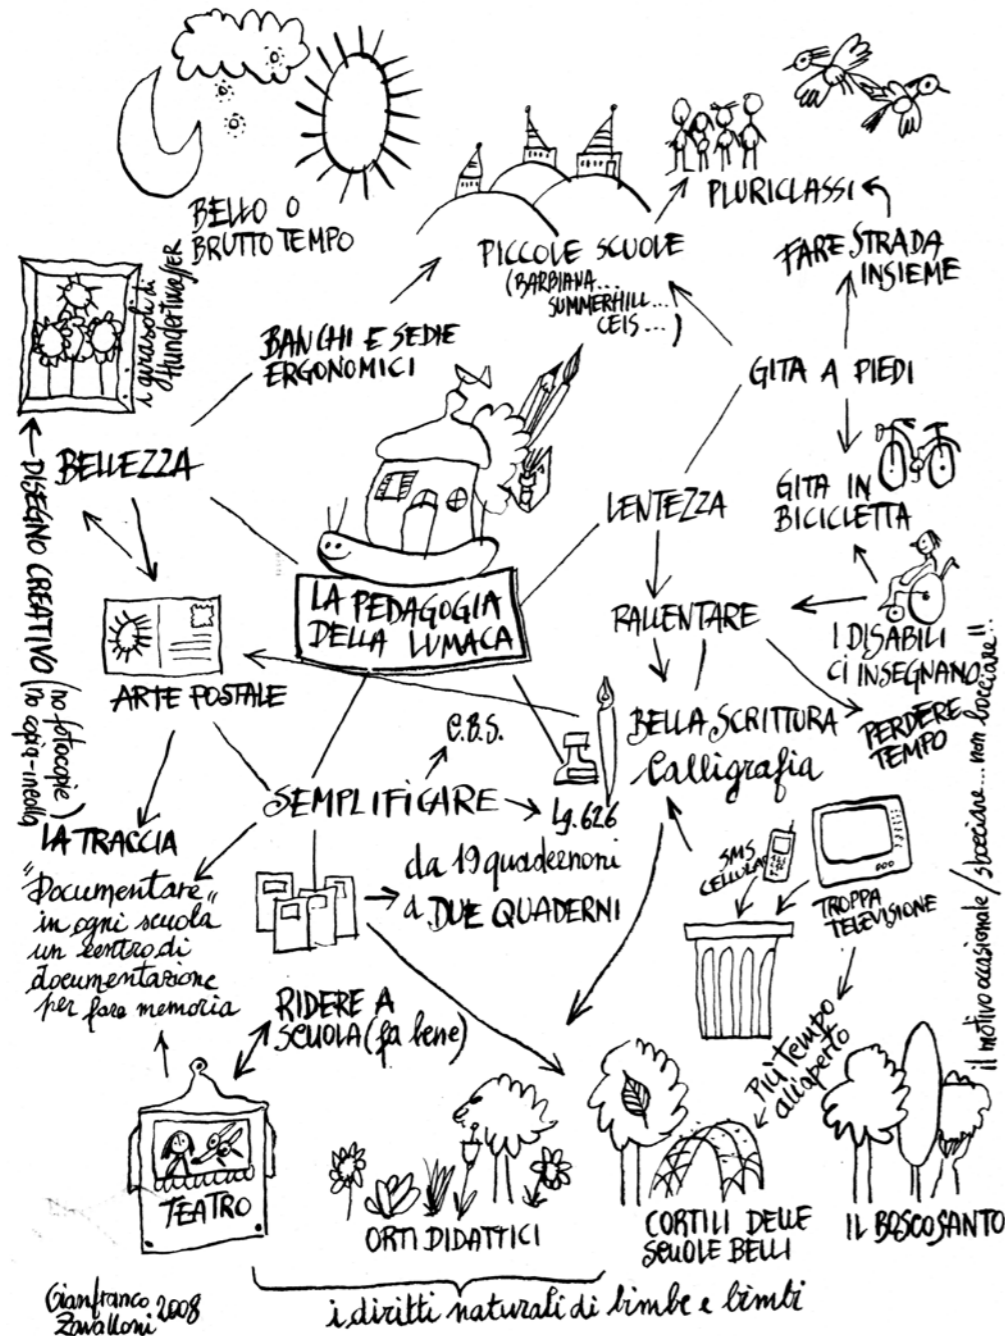 BELLO O
BRUTTO TEMPO
PICCOLE SCUOLE
(BARBIANA...
SUMMERHILL...
CEIS...)
PLURICLASSI
FARE STRADA
INSIEME
i girasoli di
Hundertwasser
BANCHI E SEDIE
ERGONOMICI
GITA A PIEDI
BELLEZZA
LENTEZZA
GITA IN
BICICLETTA
DISEGNO CREATIVO
(no fotocopie)
(no copia-incolla
LA PEDAGOGIA
DELLA LUMACA
RALLENTARE
I DISABILI
CI INSEGNANO
ARTE POSTALE
C.B.S.
BELLA SCRITTURA
Calligrafia
PERDERE
TEMPO
il motivo occasionale / sbocciare... non bocciare!!
SEMPLIFICARE
Lg. 626
LA TRACCIA
"Documentare"
in ogni scuola
un centro di
documentazione
per fare memoria
da 19 quadernoni
a DUE QUADERNI
SMS
CELLULARI
TROPPA
TELEVISIONE
RIDERE A
SCUOLA (fa bene)
PIÙ TEMPO
all'aperto
TEATRO
ORTI DIDATTICI
CORTILI DELLE
SCUOLE BELLI
IL BOSCO SANTO
Gianfranco
Zavalloni 2008
i diritti naturali di bimbe e bimbi